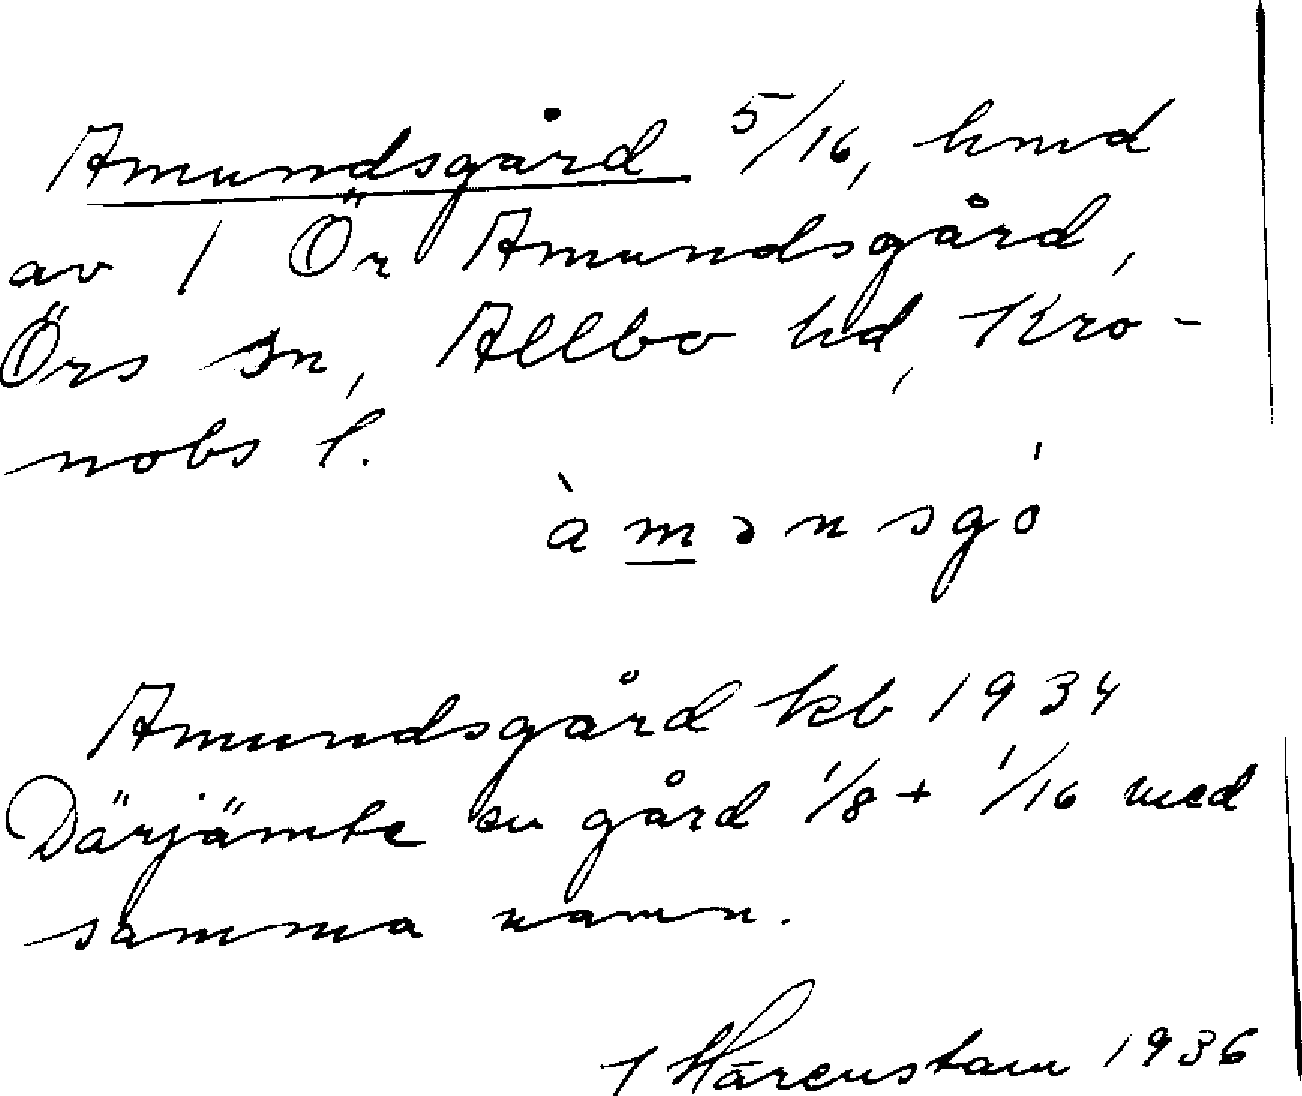 Amundsgård 5/16, hmd
av 1 Ör Amundsgård,
Örs sn, Allbo hd, Kro-
nobs l.
àmənsgó
Amundsgård kb 1934
Därjämte en gård 1/8 + 1/16 med
samma namn.
J Härenstam 1936